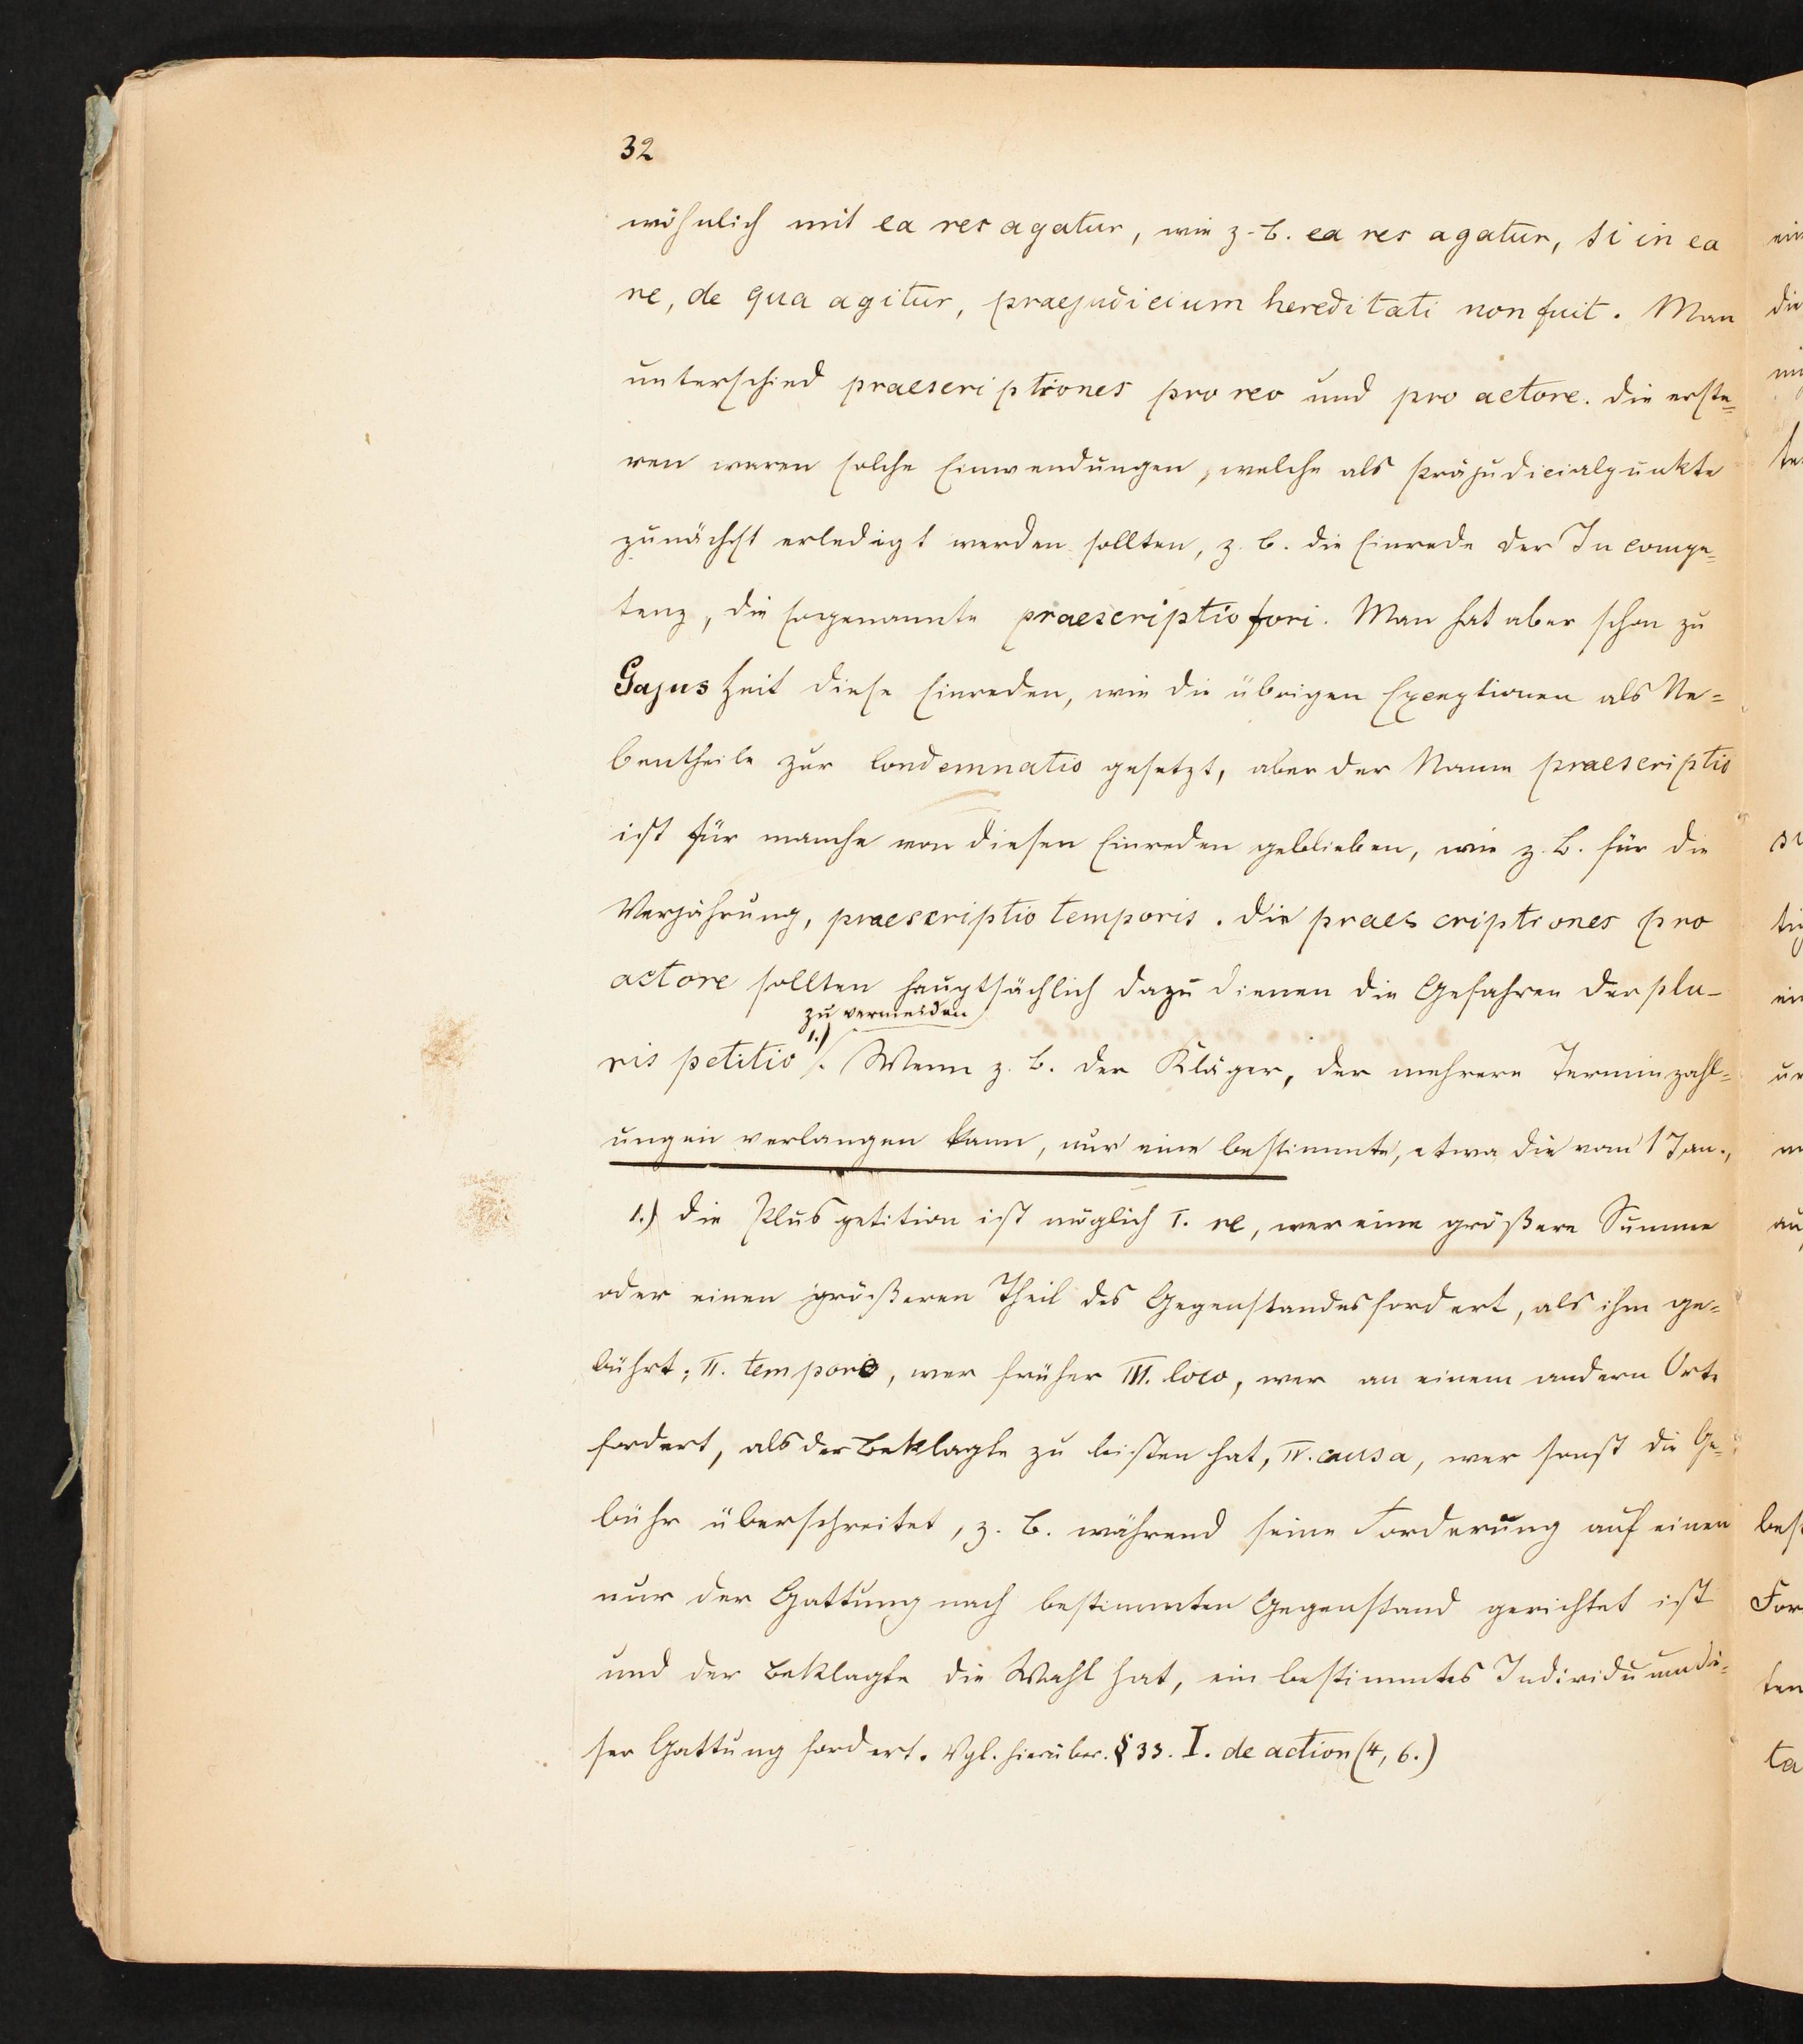 32
wöhnlich mit ea res agatur, wie z. B. ea res agatur, si in ea
re, de qua agitur, praejudicium hereditati non fuit. Man
unterschied praescriptiones pro reo und pro actore. Die erste=
ren waren solche Einwendungen, welche als Präjudicialpunkte
zunächst erledigt werden sollten, z. B. die Einrede der Incompe=
tenz, die sogenannte praescriptio fori. Man hat aber schon zu
Gajus Zeit diese Einreden, wie die übrigen Exceptionen als Ne=
bentheile zur Condemnatio gesetzt, aber der Name praescriptio
ist für manche von diesen Einreden geblieben, wie z. B. für die
Verjährung, praescriptio temporis. Die praescriptiones pro
actore sollten hauptsächlich dazu dienen die Gefahren der plu-
zu vermeiden
ris petitio 1.). Wenn z. B. der Kläger, der mehrere Terminzahl=
ungen verlangen kann, nur eine bestimmte, etwa die vom 1 Jan.,
1.) Die Pluspetition ist möglich I. re, wer eine größere Summe
oder einen größeren Theil des Gegenstandes fordert, als ihm ge=
bührt; II. tempore, wer früher III. loco, wer an einem andern Orte
fordert, als der Beklagte zu leisten hat, IV. causa, wer sonst die Ge=
bühr überschreitet, z. B. während seine Forderung auf einen
nur der Gattung nach bestimmten Gegenstand gerichtet ist
und der Beklagte die Wahl hat, ein bestimmtes Individuum die=
ser Gattung fordert. Vgl. hierüber. § 33. I. de action (4, 6.)